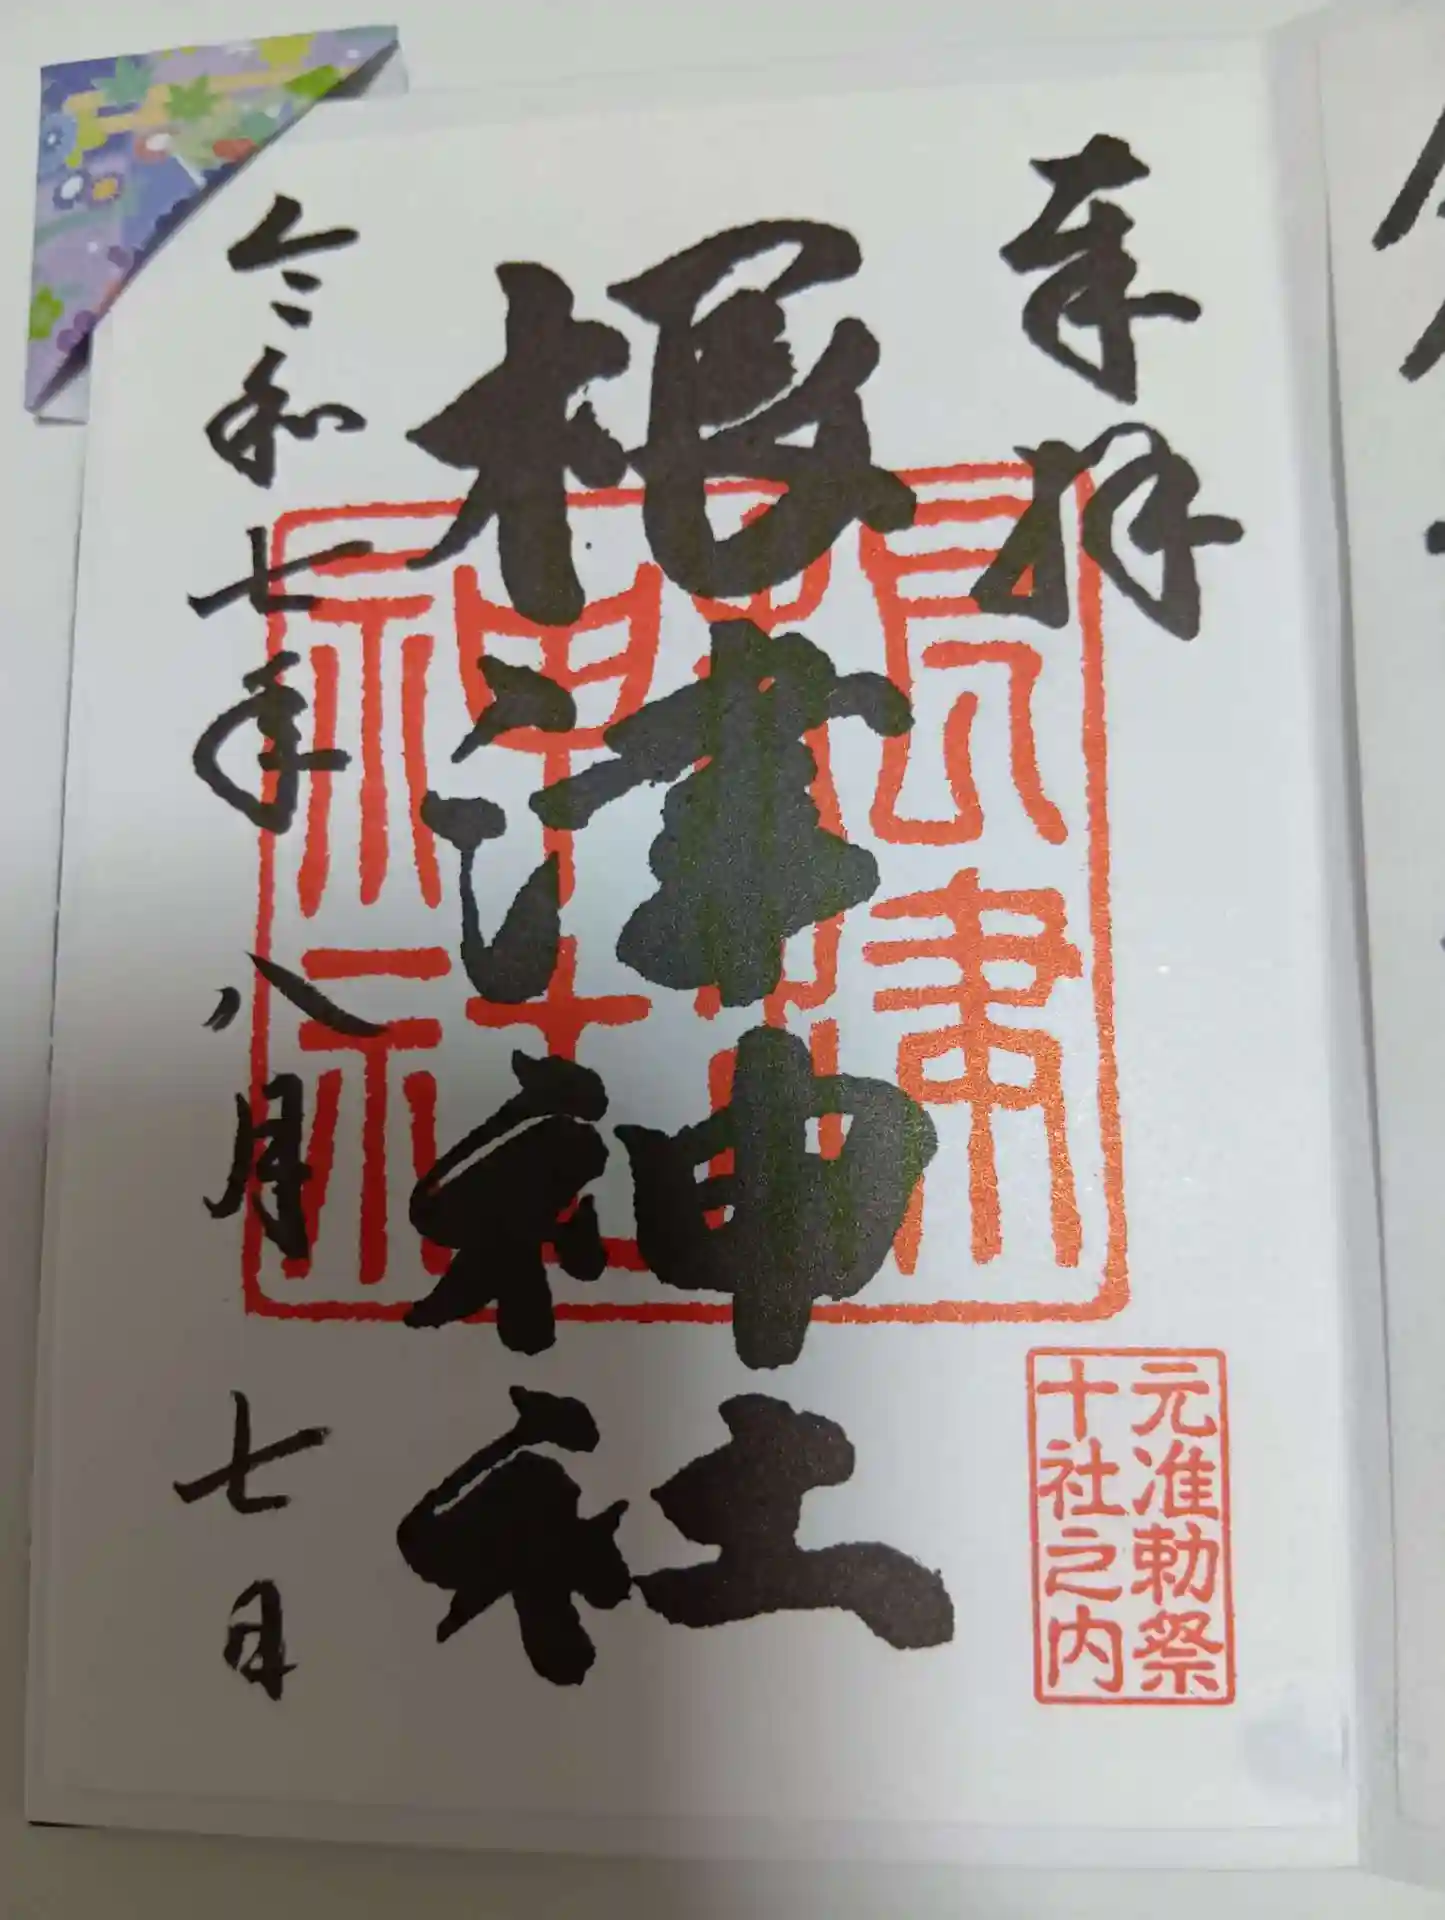 奉拝
元准勅祭
十社之内
根津神社
根津神社
令和七年八月七日